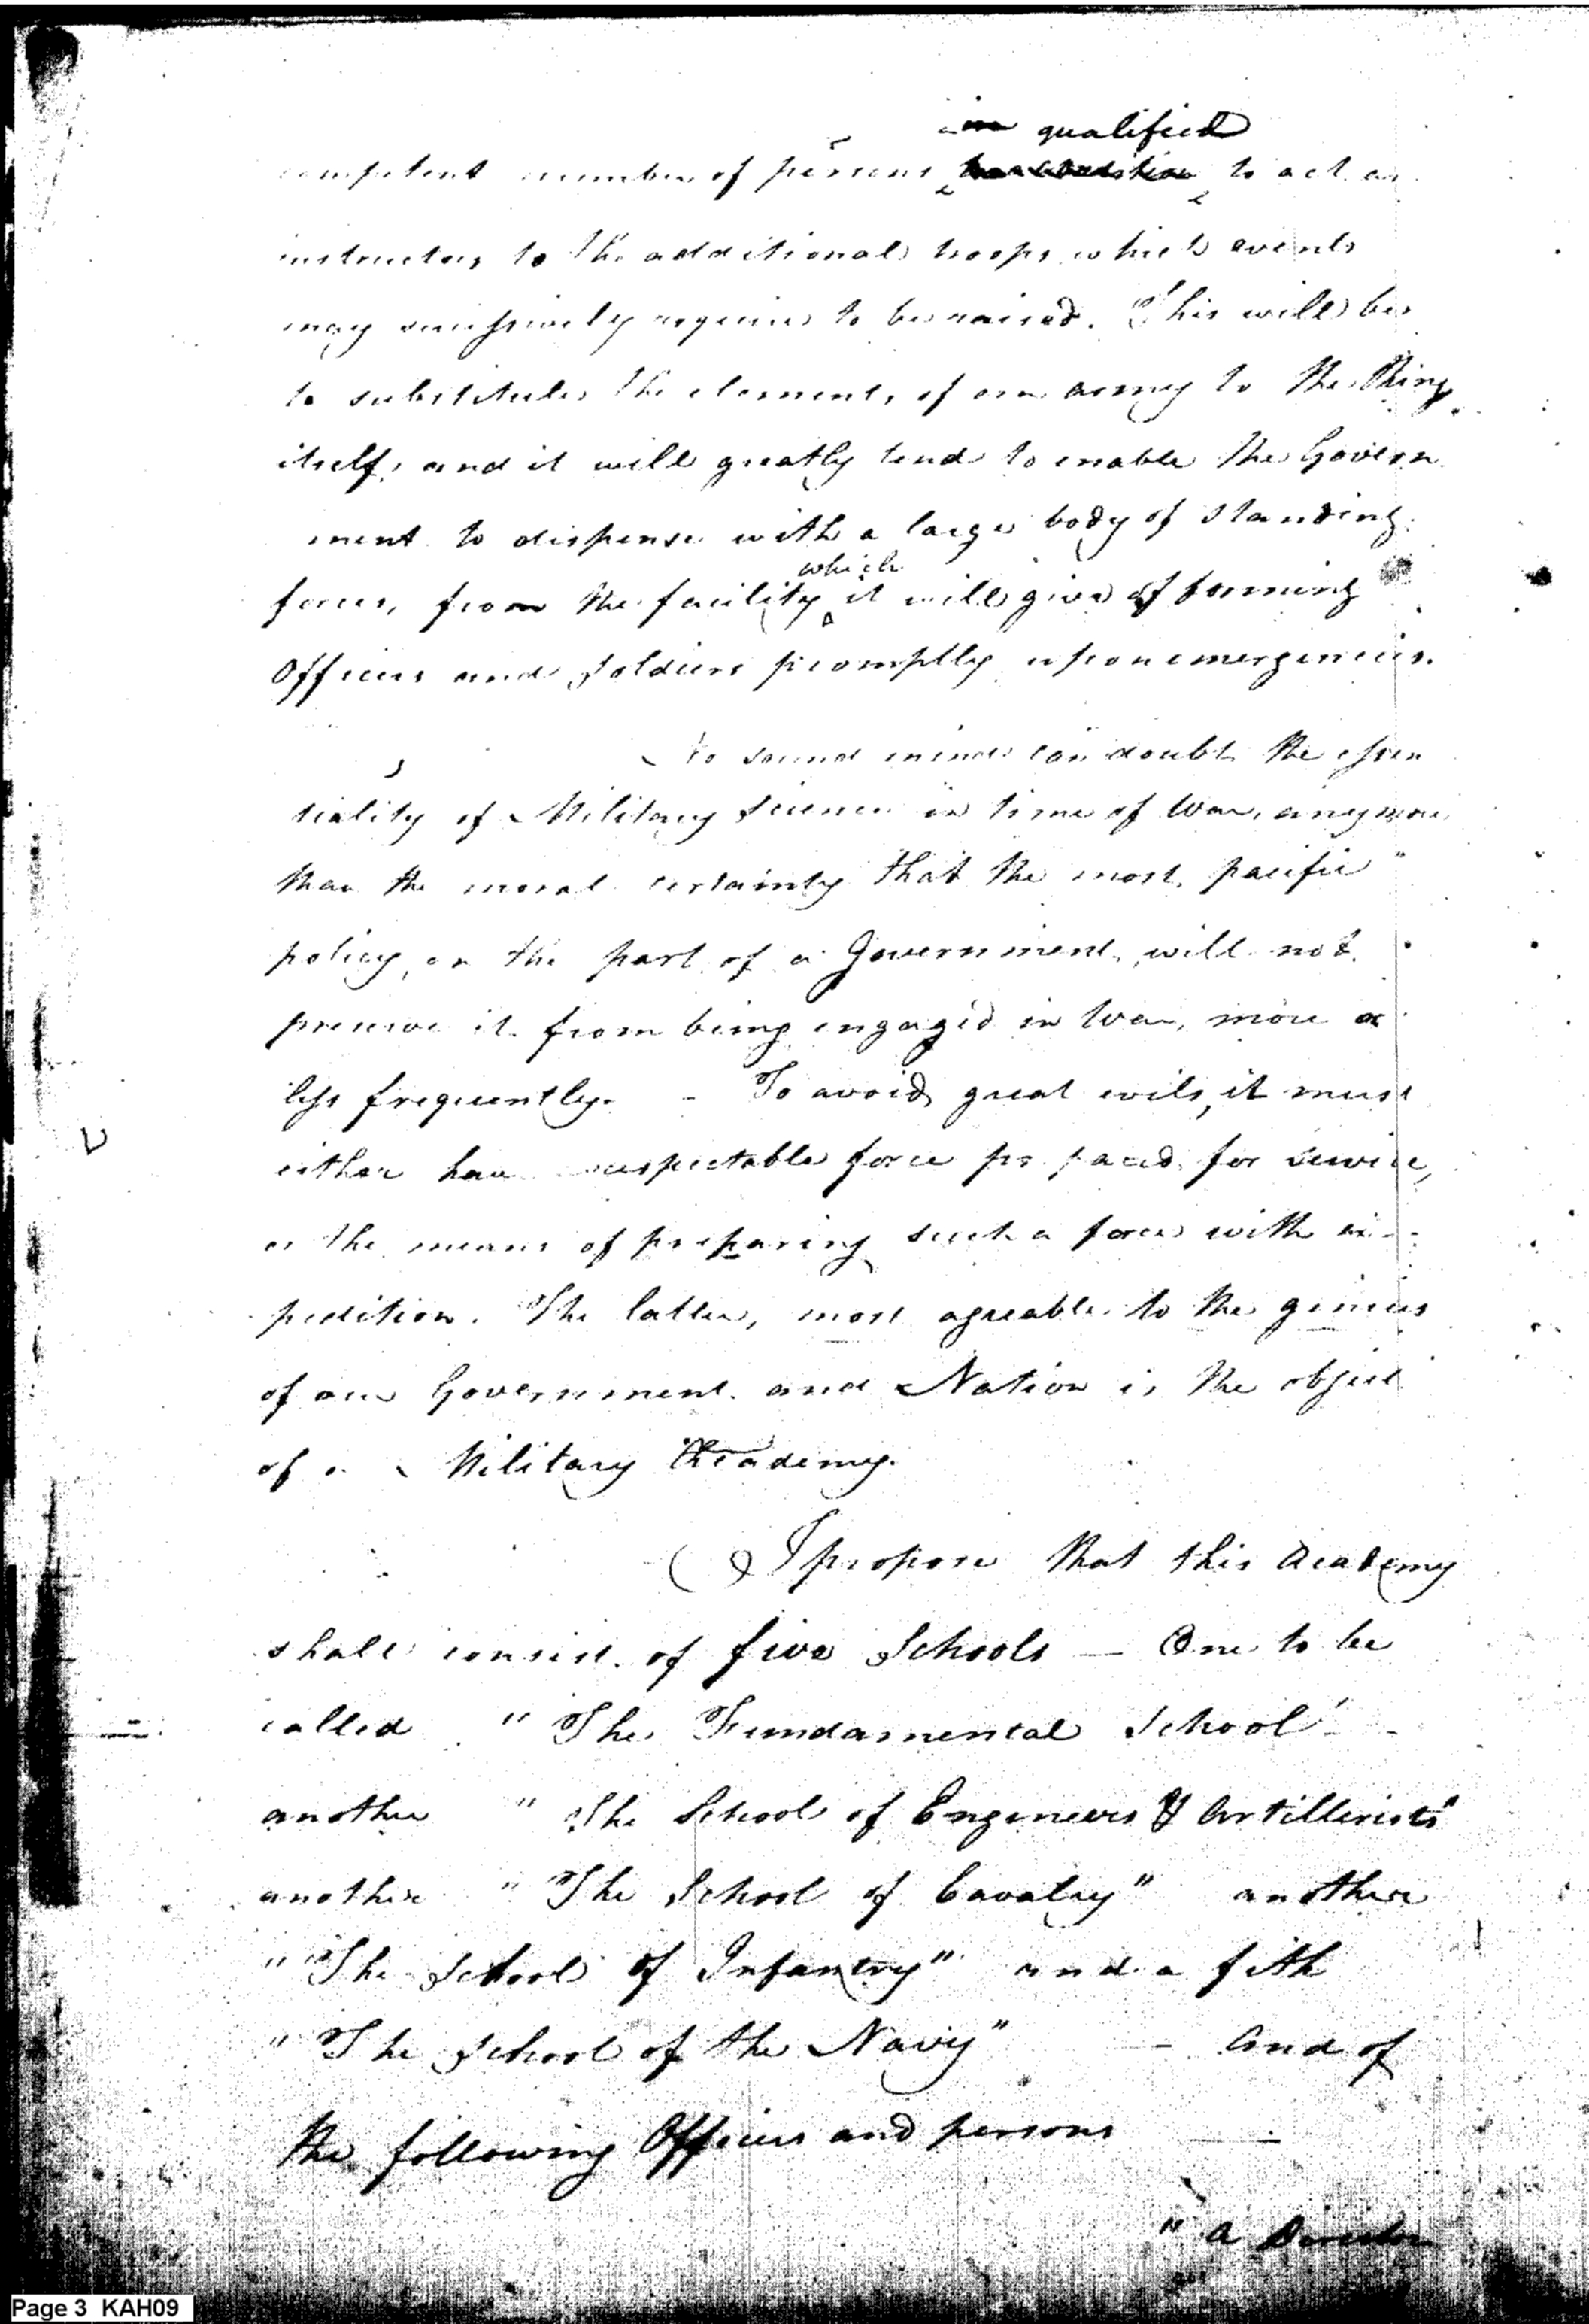 qualified
competent number of persons to act as
instructors to the additional troops which events
may successively require to be raised. This will be
to substitute the elements of an army to the thing
itself, and it will greatly tend to enable the Govern
ment to dispense with a large body of standing
which
forces, from the facility it will give of forming
Officers and Soldiers promptly upon emergencies.
No sound mind can doubt the essen
tiality of Military Science in time of War, any more
than the moral certainty that the most pacific
policy, on the part of a Government, will not
preserve it from being engaged in War, more or
less frequently. - To avoid great evils, it must
either have respectable force prepared for service,
or the means of preparing such a force with ex-
pedition. The latter, most agreable to the genius
of our Government and Nation is the object
of a Military Academy.
I propose that this Academy
shall consist of five Schools — One to be
called " The Fundamental School" -
another " The School of Engineers & Artillerists"
another " The School of Cavalry" another
" The School of Infantry" and a fifth
" The School of the Navy" - And of
the following Officers and persons —
" A Director
Page 3 KAH09